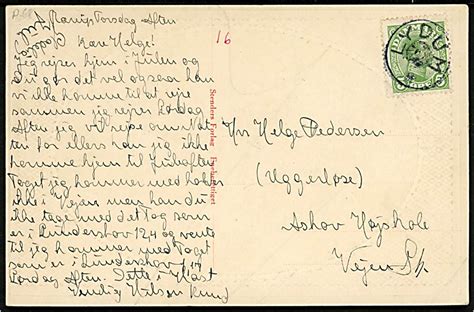 P.68
Ranip Torsdag Aften
Glædelig Jul
Kære Helge!
Jeg rejser hjem i Julen og
du gør det vel ogsaa kan
vi ikke komme til at rejse
sammen jeg rejser Lørdag
Aften jeg vil rejse om Nat
ten for ellers kan jeg ikke
komme hjem til Juleaften
Toget jeg kommer med holder
ikke i Vejen men kan du
ikke tage med det Tog som
er i Lunderskov 12,4 og vente
til jeg kommer med Toget
som er i Lunderskov
Lørdag Aften. Dette i Hast
Venlig Hilsen Knud
16
Stenders Forlag Eneberettiget
YDUM
Hr Helge Pedersen
(Uggerløse)
Askov Højskole
Vejen St.